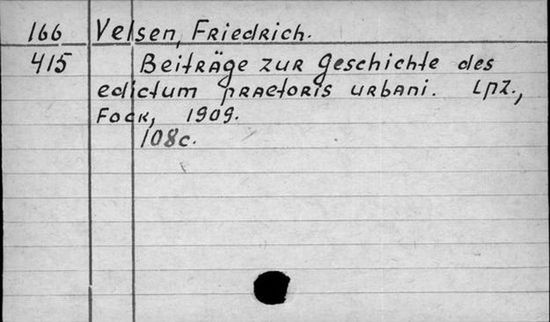 166 Velsen, Friedrich.
415 Beiträge zur Geschichte des
edictum praetoris urbani. Lpz.,
Fock, 1909.
108c.